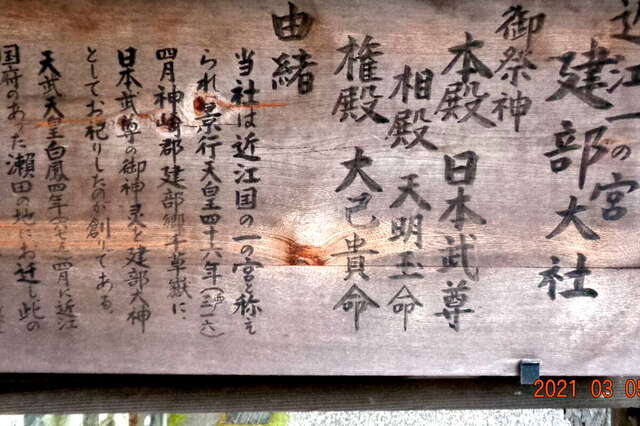 近江一の宮
建部大社
御祭神
本殿 日本武尊
相殿 天明玉命
権殿 大己貴命
由緒
当社は近江国の一の宮と称せ
られ景行天皇四十六年(三一六)
四月神崎郡建部郷千草嶽に
日本武尊の御神霊を建部大神
としてお祀りしたのが創りである
天武天皇白鳳四年 四月に近江
国府のあった瀬田の地にお迁し此の
2021 03 05